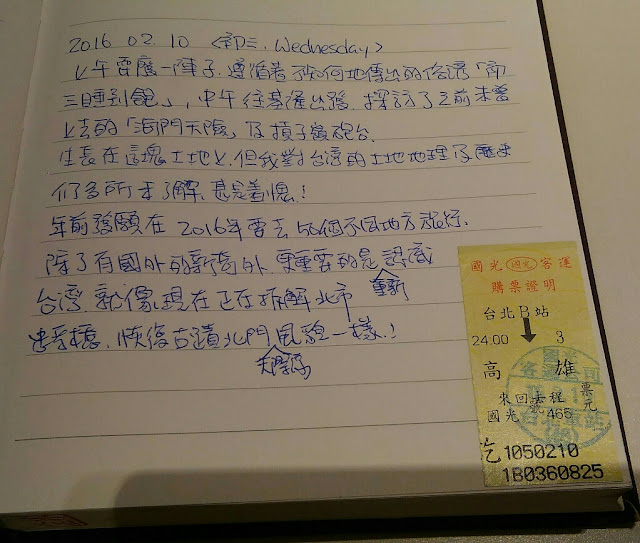 2016 02.10 <初三. Wednesday>
上午賴一陣子. 遵循著不知何地傳出的俗諺「初
三睡到飽」, 中午往基隆出發. 探訪了之前未曾
上去的「海門天險」及槓子寮砲台.
生長在這塊土地上, 但我對台灣的土地地理及歷史
仍多所未了解. 甚是羞愧!
年前發願在 2016年要去 50個不同地方旅行.
除了有國外的新漪外. 更重要的是 認識
重新
台灣. 就像現在正在拆解北市
忠孝橋. 恢復古蹟北門 風貌一樣.!
天際
國光 國光 客運
購票證明
台北B站
24:00 3
高 雄
來回去程
國光 號 465 元
票
訖 1050210
1B0360825